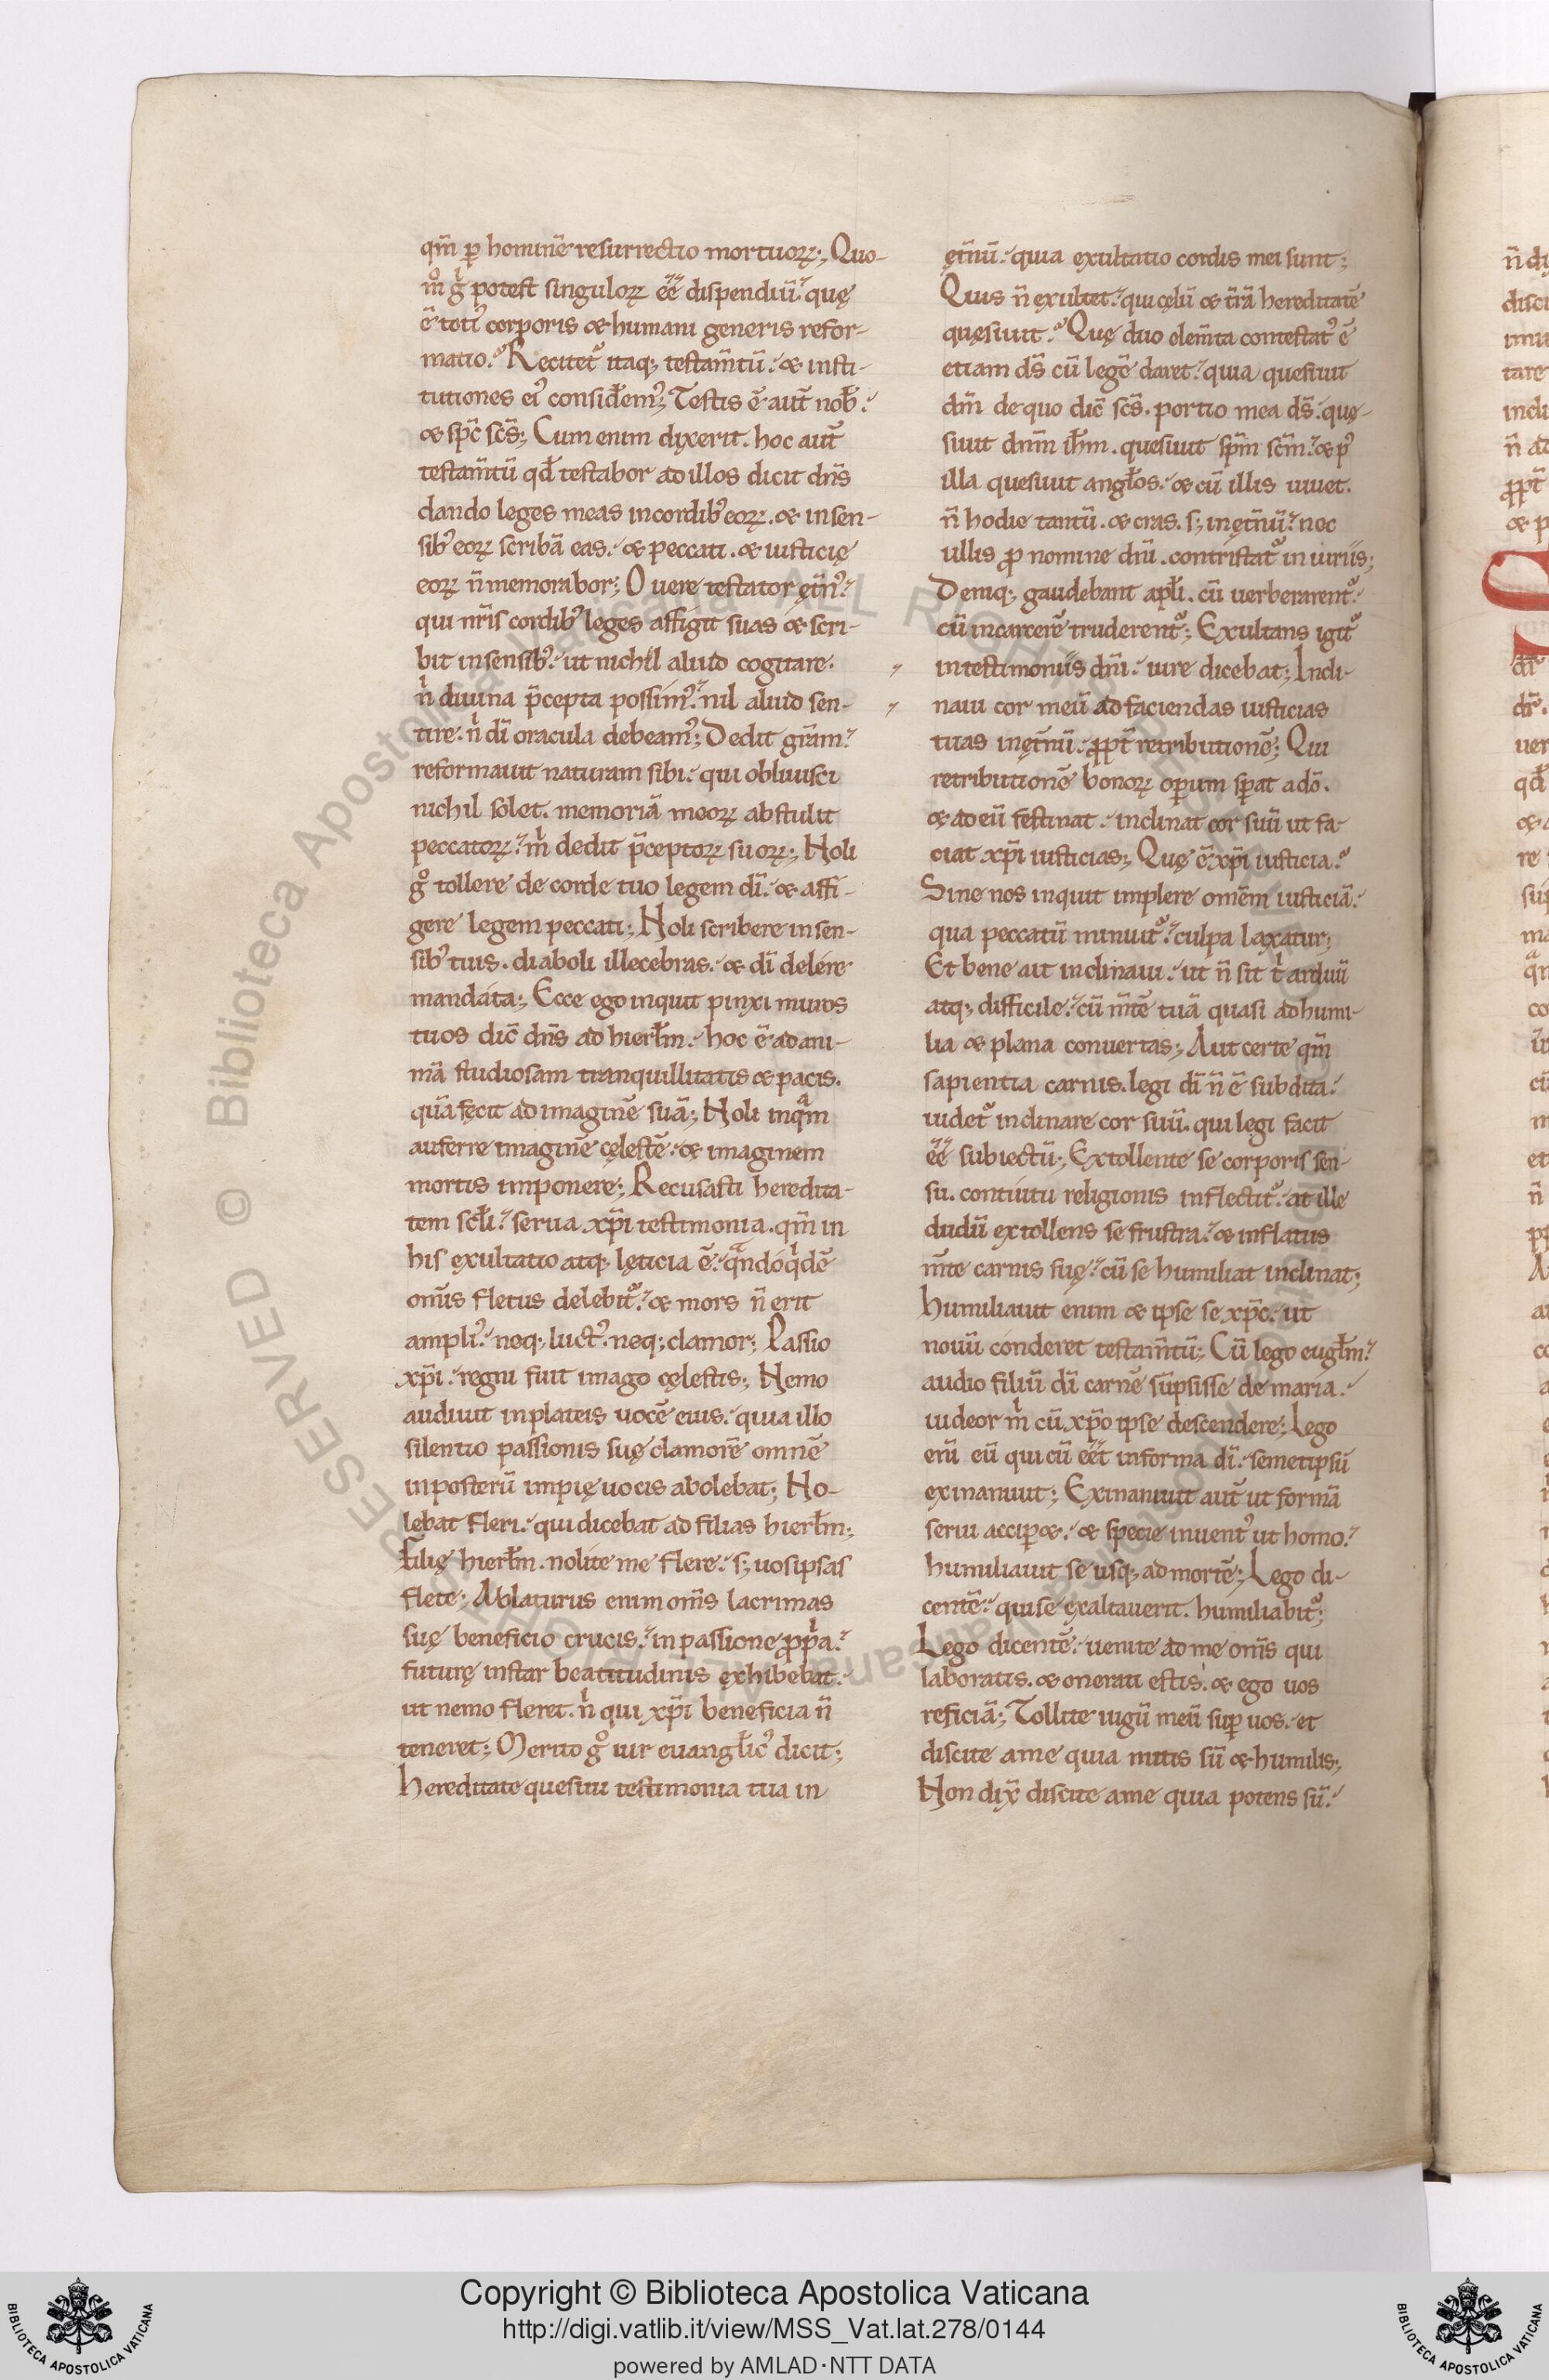 qm̄ ꝑ hominē resurrectio mortuoꝝ; Quo-
m̊ g̊ potest singuloꝝ eē dispendiū? quę
ē toti᾽ corporis & humani generis refor-
matio? Recitet᾽ itaq; testam̄tū. & insti-
tutiones ei᾽ considem᾽; Testis ē aut̄ nob̄.
& sp̄c sc̄s; Cum enim dixerit. hoc aut̄
testam̄tū qđ testabor ad illos dicit dn̄s
dando leges meas in cordib᾽ eoꝝ. & in sen-
sib᾽ eoꝝ scribā eas. & peccati. & iusticię
eoꝝ n̄ memorabor; O uere testator ęt̄n᾽
qui nr̄is cordib᾽ leges affigit suas & scri-
bit in sensib᾽. ut nichil aliud cogitare.
n̍ diuina p̄cepta possim᾽. nil aliud sen-
tire. n̍ dī oracula debeam᾽; Dedit gr̄am.
reformauit naturam sibi. qui obliuisci
nichil solet. memoriā meoꝝ abstulit
peccatoꝝ. m̍ dedit p̄ceptoꝝ suoꝝ; Noli
g̊ tollere de corde tuo legem dī. & affi-
gere legem peccati; Noli scribere in sen-
sib᾽ tuis. diaboli illecebras. & dī delere
mandata; Ecce ego inquit pinxi muros
tuos dic̄ dn̄s ad hierłm. hoc ē ad ani-
mā studiosam tranquillitatis & pacis.
quā fecit ad imaginē suā; Noli inqͣm
auferre imaginē cęlestē. & imaginem
mortis imponere; Recusasti heredita-
tem scłi. serua xp̄i testimonia. qm̄ in
his exultatio atq; lęticia ē. qͣndoqͥdē
om̄is fletus delebit᾽. & mors n̄ erit
ampli᾽. neq; luct᾽. neq; clamor; Passio
xp̄i. regni fuit imago cęlestis; Nemo
audiuit in plateis uocē eius. quia illo
silentio passionis suę clamorē omnē
in posterū impię uocis abolebat; No-
lebat fleri. qui dicebat ad filias hierłm;
Filię hierłm. nolite me flere. s; uos ipsas
flete; Ablaturus enim om̄s lacrimas
suę beneficio crucis. in passione ꝓpͥa.
futurę instar beatitudinis exhibebat.
ut nemo fleret. n̍ qui xp̄i beneficia n̄
teneret; Merito g̊ uir euangłic᾽ dicit;
Hereditate quesiui testimonia tua in
ęt̄nū. quia exultatio cordis mei sunt;
Quis n̄ exultet. qui cęlū & t̄rā hereditatē
quęsiuit? Quę duo elem̄ta contestat᾽ ē
etiam dş cū legē daret. quia quesiuit
dm̄ de quo dic̄ sc̄s. portio mea ds̄. quę-
siuit dnm̄ ih̄m. quesiuit sp̄m sc̄m. & p᾽
illa quesiuit angłos. & cū illis uiuet.
n̄ hodie tantū. & cras. s; in ęt̄nū. nec
ullis ꝓ nomine dn̄i. contristat᾽ iniuriis;
Deniq; gaudebant apłi. cū uerberarent᾽.
cū in carcerē truderent᾽; Exultans igit᾽
in testimoniis dn̄i. iure dicebat; Incli-
naui cor meū ad faciendas iusticias
tuas in ęt̄nū. ꝓpt̄ retributionē; Qui
retributionē bonoꝝ oꝑum sꝑat a dō.
& ad eū festinat. inclinat cor suū ut fa-
ciat xp̄i iusticias; Quę ē xp̄i iusticia?
Sine nos inquit implere omēm iusticiā.
qua peccatū minuit᾽. culpa laxatur;
Et bene ait inclinaui. ut n̄ sit t̍ arduū
atq; difficile. cū m̄tē tuā quasi ad humi-
lia & plana conuertas; Aut certe qm̄
sapientia carnis. legi dī n̄ ē subdita.
uidet᾽ inclinare cor suū. qui legi facit
eē subiectū; Extollente se corporis sen-
su. contuitu religionis inflectit᾽. at ille
dudū extollens se frustra. & inflatus
m̄te carnis suę. cū se humiliat inclinat;
Humiliauit enim & ipse se xp̄c. ut
nouū conderet testam̄tū; Cū lego eugłm.
audio filiū dī carnē sūpsisse de maria.
uideor m̍ cū xp̄o ipse descendere; Lego
enī eū qui cū eēt in forma dī. semetipsū
exinaniuit; Exinaniuit aut̄ ut formā
serui accip&. & specie inuent᾽ ut homo.
humiliauit se usq; ad mortē; Lego di-
centē. qui se exaltauerit. humiliabit᾽;
Lego dicentē. uenite ad me om̄s qui
laboratis. & onerati estis. & ego uos
reficiā; Tollite iugū meū suꝑ uos. et
discite a me quia mitis sū & humilis;
Non dix̄ discite a me quia potens sū.
Copyright © Biblioteca Apostolica Vaticana
http://digi.vatlib.it/view/MSS_Vat.lat.278/0144
powered by AMLAD·NTT DATA
BIBLIOTECA APOSTOLICA VATICANA
BIBLIOTECA APOSTOLICA VATICANA